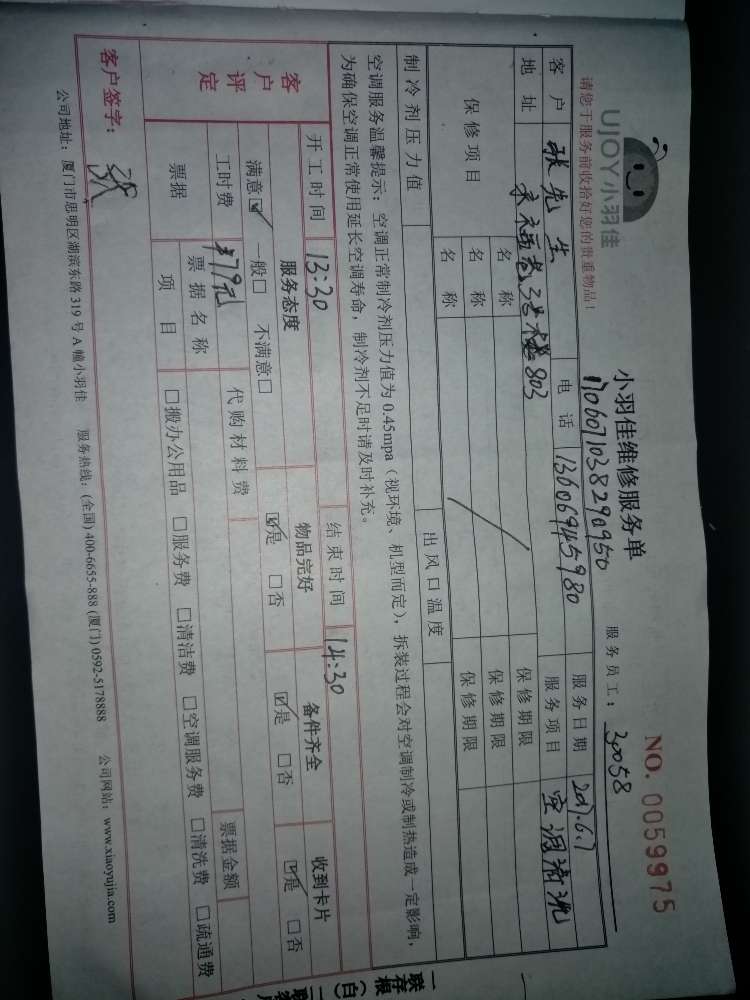 UJOY小羽佳
小羽佳维修服务单
NO. 0059975
请您于服务前收拾好您的贵重物品!
1706071038290950
服务员工: 30058
客户 张先生 电话 13606945980 服务日期 2017.6.7
地址 803 服务项目 空调清洗
保修项目 名称 保修期限
名称 保修期限
名称 保修期限
制冷剂压力值 出风口温度
空调服务温馨提示: 空调正常制冷剂压力值为 0.45mpa (视环境、机型而定), 拆装过程会对空调制冷或制热造成一定影响,
为确保空调正常使用延长空调寿命, 制冷剂不足时请及时补充。
开工时间 13:30 结束时间 14:30
客户评定 服务态度 物品完好 备件齐全 收到卡片
满意☑ 一般□ 不满意□ ☑是 □否 ☑是 □否 ☑是 □否
工时费 79元 代购材料费 票据金额
票据 票据名称
项目 □搬办公用品 □服务费 □清洁费 □空调服务费 □清洗费 □疏通费
客户签字:
公司地址: 厦门市思明区湖滨东路 319 号 A 幢小羽佳 服务热线: (全国) 400-6655-888 (厦门) 0592-5178888 公司网站: www.xiaoyujia.com
一联存根(白)